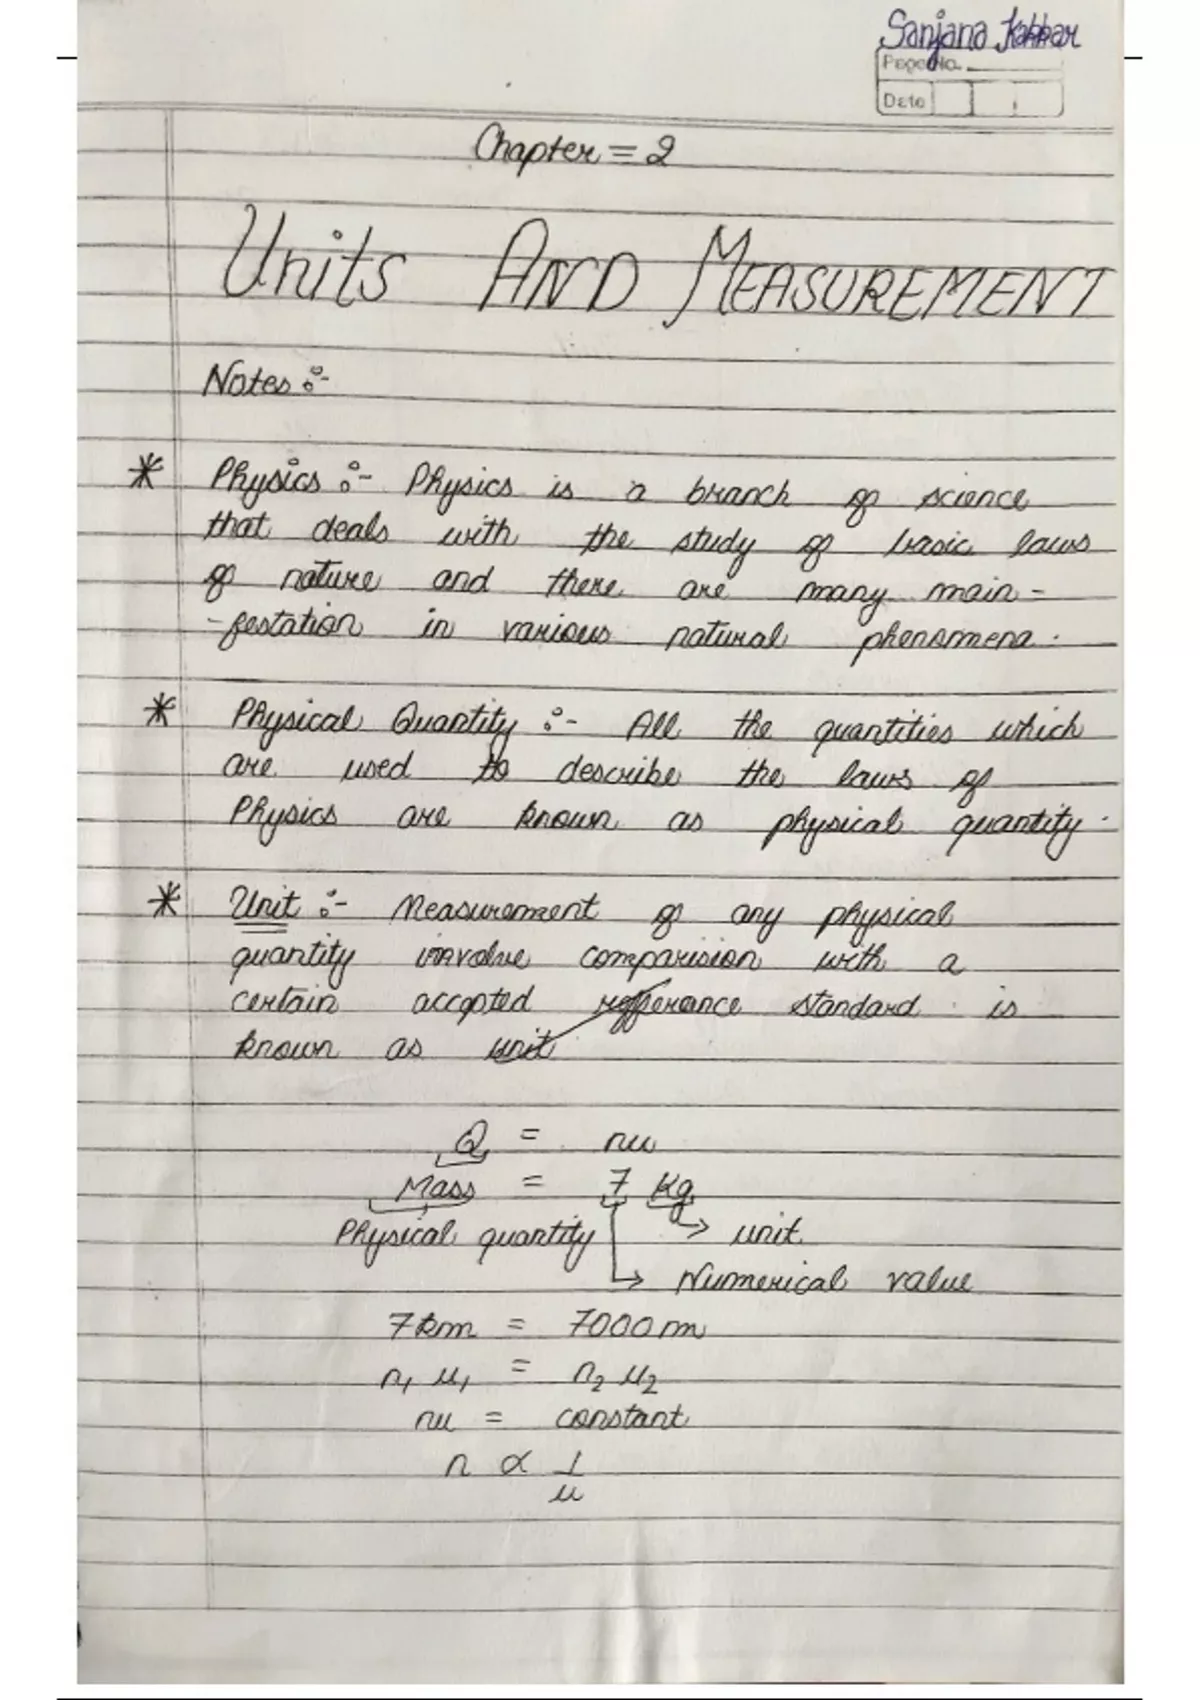 Sanjana Kakkar
Page No.
Date
Chapter = 2
Units AND MEASUREMENT
Notes :-
* Physics :- Physics is a branch of science
that deals with the study of basic laws
of nature and there are many main-
-festation in various natural phenomena.
* Physical Quantity :- All the quantities which
are used to describe the laws of
Physics are known as physical quantity.
* Unit :- Measurement of any physical
quantity involve comparision with a
certain accepted refferance standard is
known as unit
Q = nu
Mass = 7 Kg
Physical quantity → unit.
→ Numerical value
7km = 7000m
n₁ u₁ = n₂ u₂
nu = constant
n ∝ 1/u